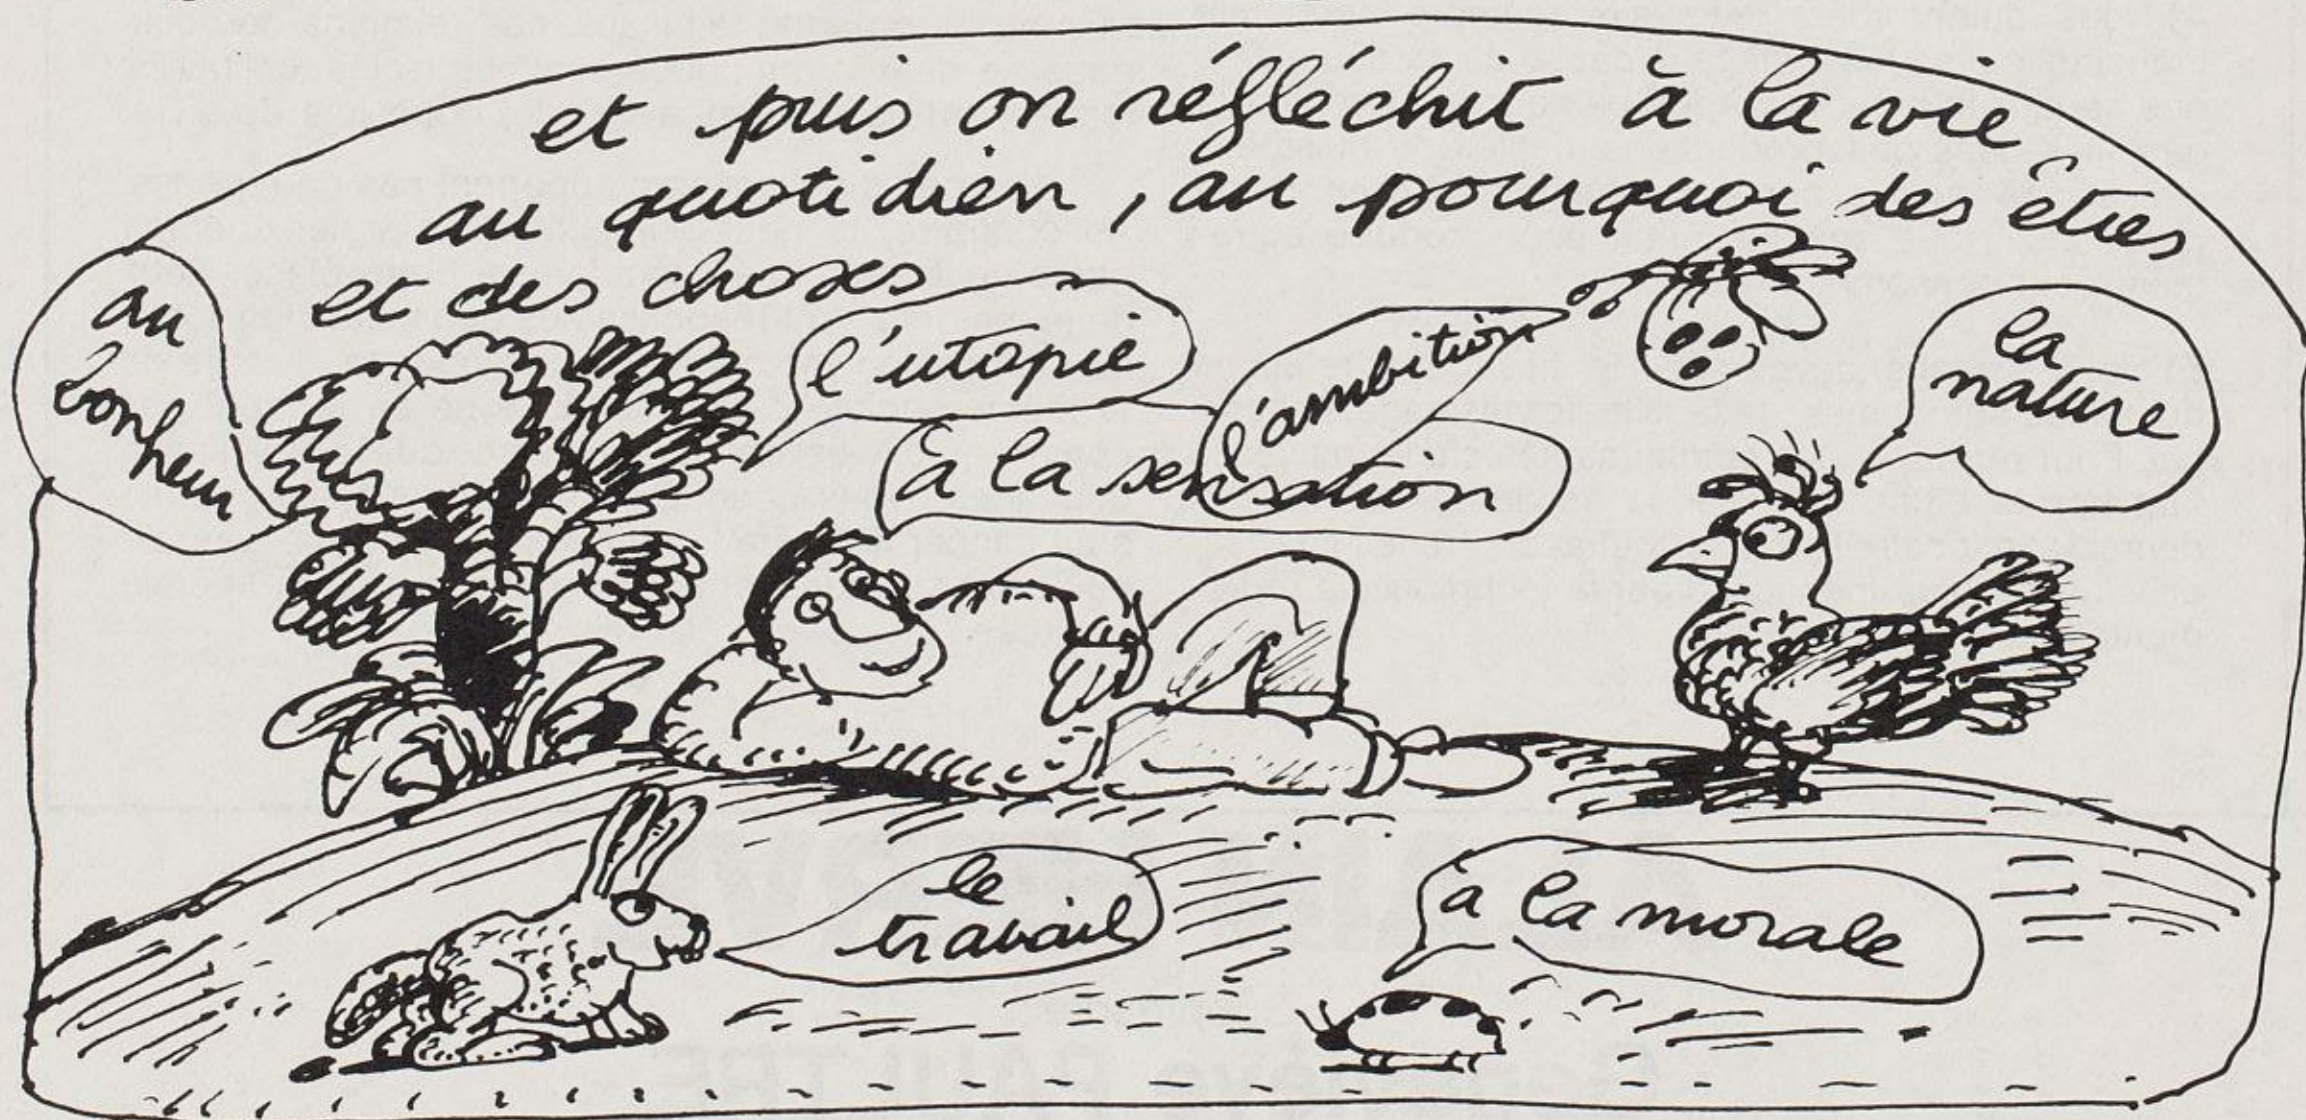 et puis on réfléchit à la vie
au quotidien, au pourquoi des êtres
et des choses
au
bonheur
l'utopie
l'ambition
à la sensation
la
nature
le
travail
a la morale